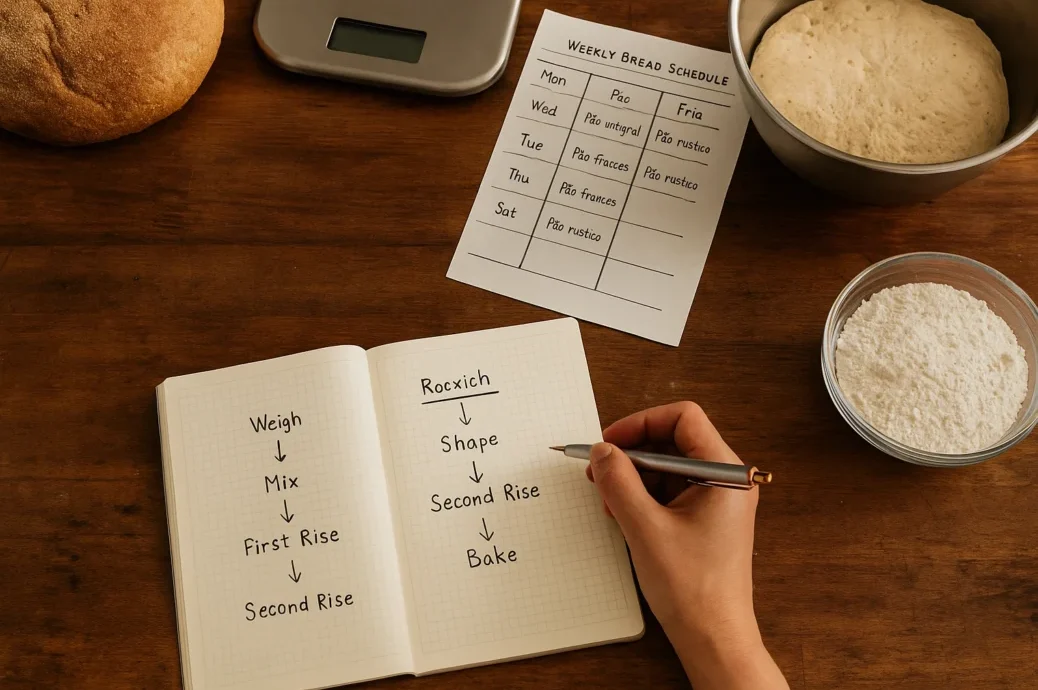 WEEKLY BREAD SCHEDULE
Mon Pão Fria
Wed Pão untigral Pão rustico
Tue Pão fracces Pão rustico
Thu Pão frances
Sat Pão rustico
Weigh
↓
Mix
↓
First Rise
↓
Second Rise
Rocxich
↓
Shape
↓
Second Rise
↓
Bake